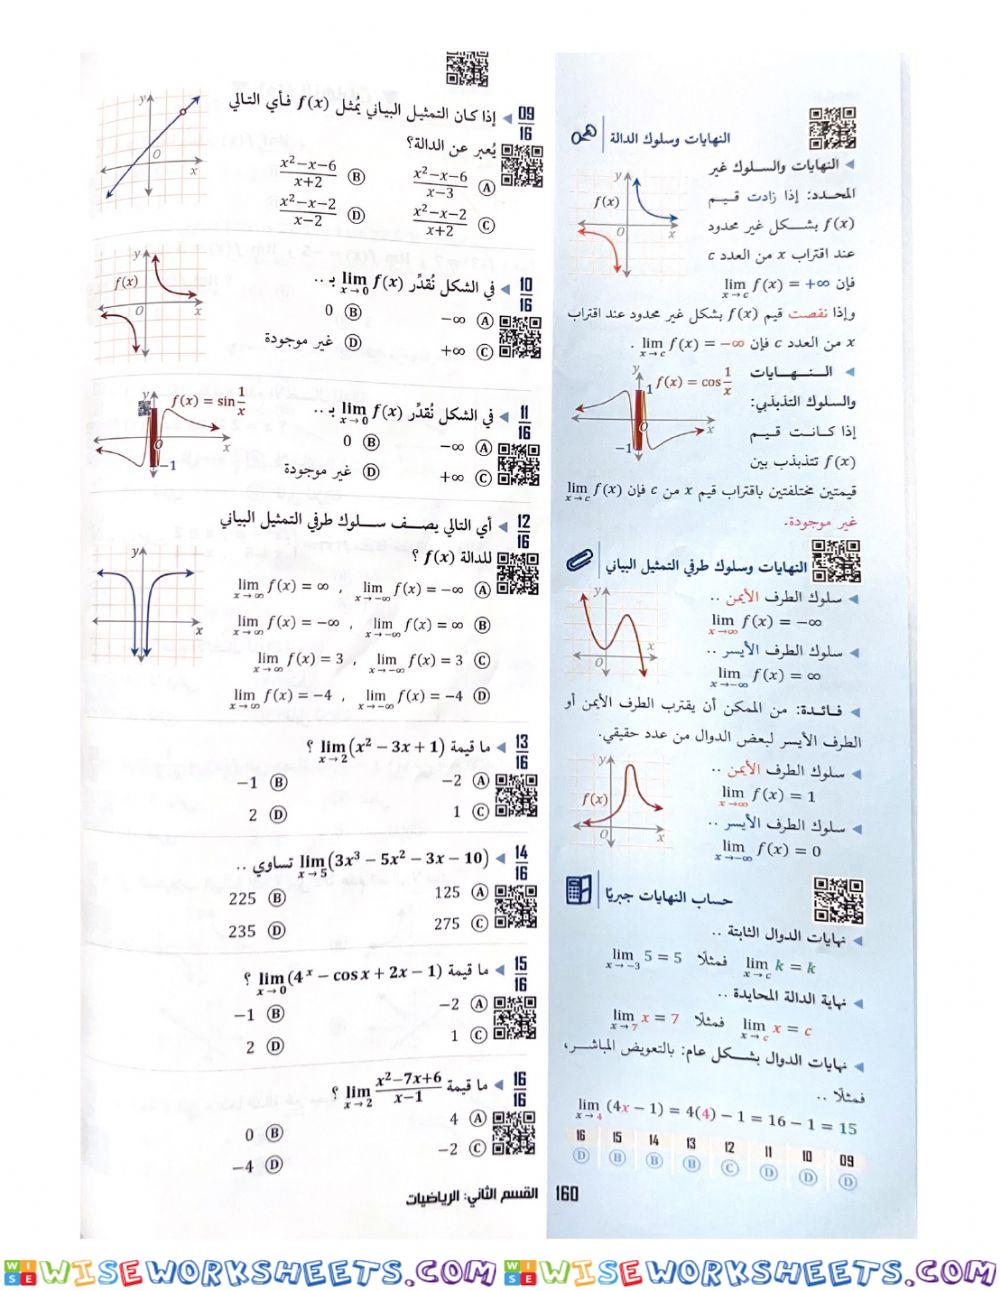 النهايات وسلوك الدالة
◂ النهايات والسلوك غير
المحدد: إذا زادت قيم
f(x) بشكل غير محدود
عند اقتراب x من العدد c
فإن lim x→c f(x) = +∞
وإذا نقصت قيم f(x) بشكل غير محدود عند اقتراب
x من العدد c فإن lim x→c f(x) = −∞ .
y
f(x)
O
x
◂ النهايات
والسلوك التذبذبي:
إذا كانت قيم
f(x) تتذبذب بين
قيمتين مختلفتين باقتراب قيم x من c فإن lim x→c f(x)
غير موجودة.
y
1
f(x) = cos 1/x
x
O
−1
النهايات وسلوك طرفي التمثيل البياني
◂ سلوك الطرف الأيمن ..
lim x→∞ f(x) = −∞
◂ سلوك الطرف الأيسر ..
lim x→−∞ f(x) = ∞
y
x
O
◂ فائدة: من الممكن أن يقترب الطرف الأيمن أو
الطرف الأيسر لبعض الدوال من عدد حقيقي.
◂ سلوك الطرف الأيمن ..
lim x→∞ f(x) = 1
◂ سلوك الطرف الأيسر ..
lim x→−∞ f(x) = 0
y
f(x)
O
x
حساب النهايات جبريًا
◂ نهايات الدوال الثابتة ..
lim x→c k = k فمثلًا lim x→−3 5 = 5
◂ نهاية الدالة المحايدة ..
lim x→c x = c فمثلًا lim x→7 x = 7
◂ نهايات الدوال بشكل عام: بالتعويض المباشر،
فمثلًا ..
lim x→4 (4x − 1) = 4(4) − 1 = 16 − 1 = 15
16 15 14 13 12 11 10 09
D B B B C D D D
160
09/16 ◂ إذا كان التمثيل البياني يُمثل f(x) فأي التالي
يُعبر عن الدالة؟
A (x²−x−6)/(x−3) B (x²−x−6)/(x+2)
C (x²−x−2)/(x+2) D (x²−x−2)/(x−2)
y
O
x
10/16 ◂ في الشكل نُقدِّر lim x→0 f(x) بـ ..
A −∞ B 0
C +∞ D غير موجودة
y
f(x)
O
x
11/16 ◂ في الشكل نُقدِّر lim x→0 f(x) بـ ..
A −∞ B 0
C +∞ D غير موجودة
y
f(x) = sin 1/x
x
O
−1
12/16 ◂ أي التالي يصف سلوك طرفي التمثيل البياني
للدالة f(x) ؟
A lim x→−∞ f(x) = −∞ , lim x→∞ f(x) = ∞
B lim x→−∞ f(x) = ∞ , lim x→∞ f(x) = −∞
C lim x→−∞ f(x) = 3 , lim x→∞ f(x) = 3
D lim x→−∞ f(x) = −4 , lim x→∞ f(x) = −4
y
x
13/16 ◂ ما قيمة lim x→2 (x² − 3x + 1) ؟
A −2 B −1
C 1 D 2
14/16 ◂ lim x→5 (3x³ − 5x² − 3x − 10) تساوي ..
A 125 B 225
C 275 D 235
15/16 ◂ ما قيمة lim x→0 (4ˣ − cos x + 2x − 1) ؟
A −2 B −1
C 1 D 2
16/16 ◂ ما قيمة lim x→2 (x²−7x+6)/(x−1) ؟
A 4 B 0
C −2 D −4
القسم الثاني: الرياضيات
WISE WISEWORKSHEETS.COM WISE WISEWORKSHEETS.COM